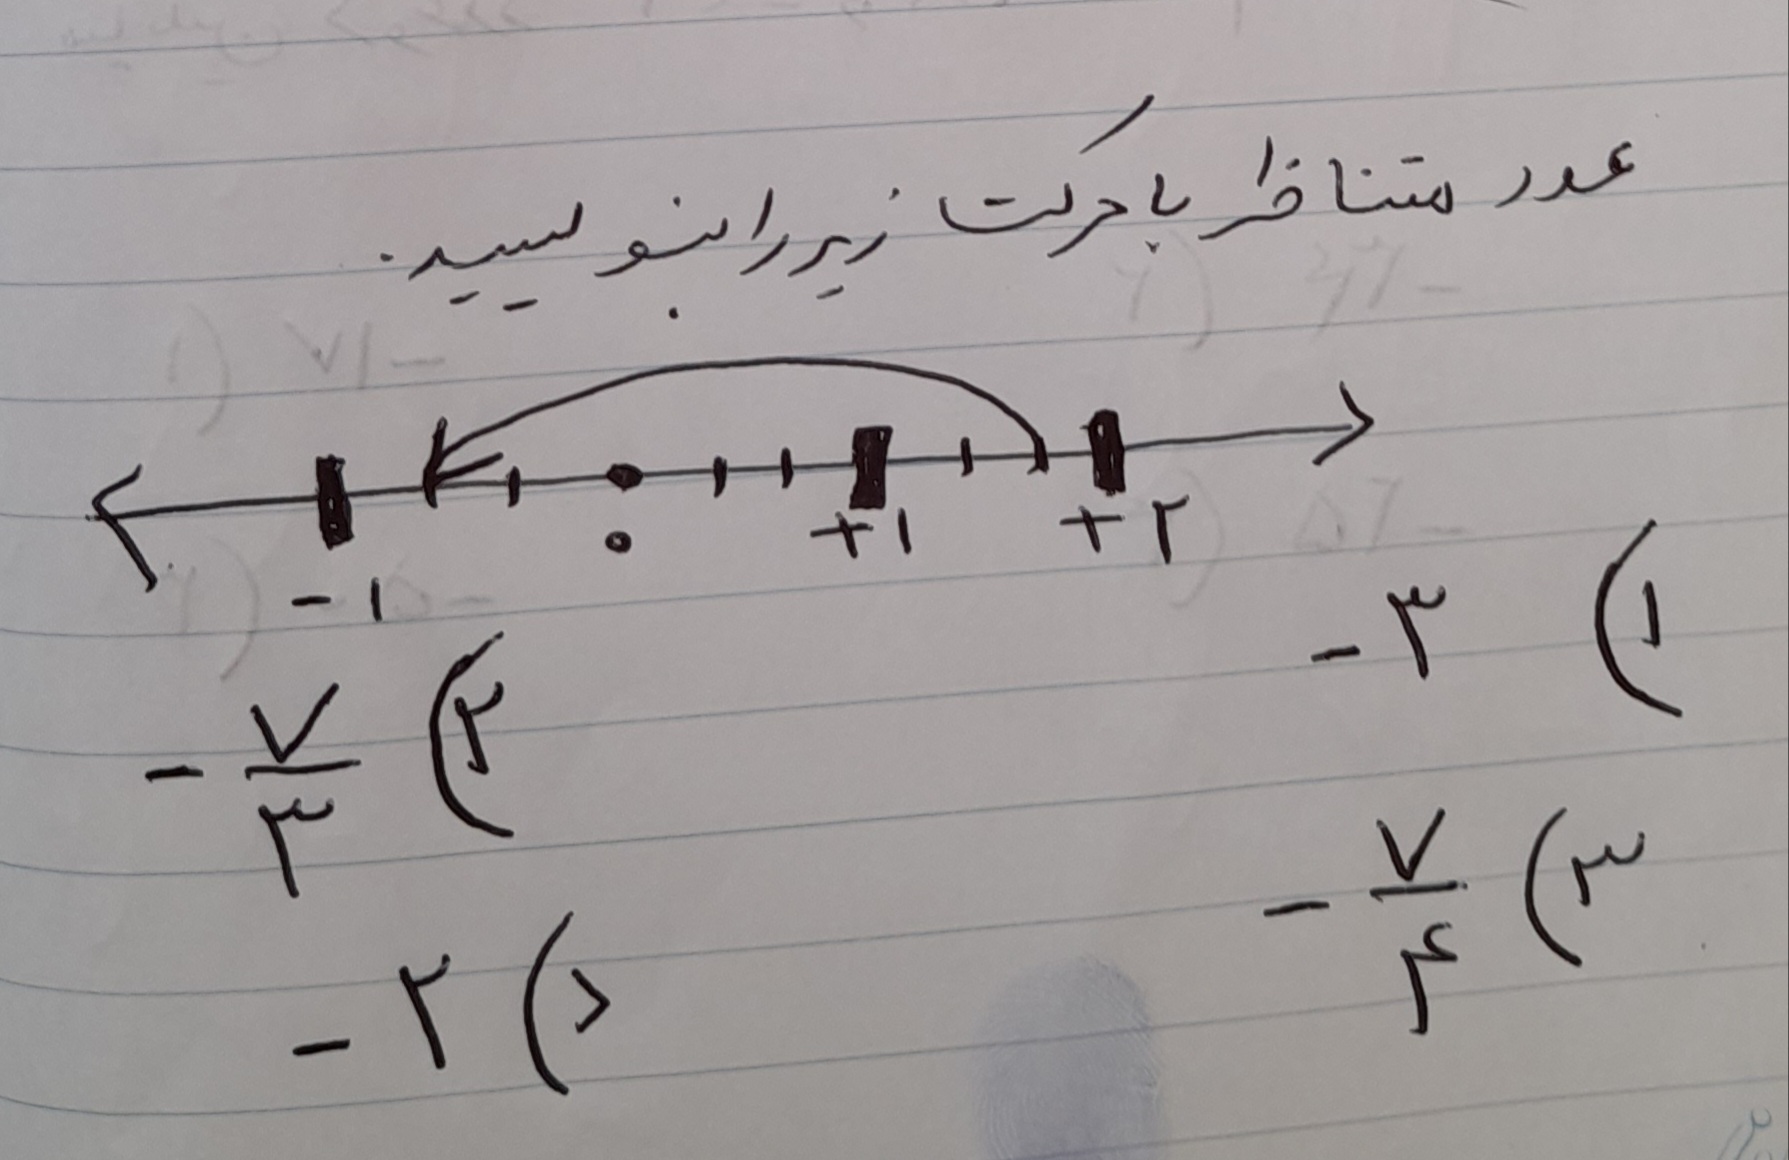 عدد متناظر با حرکت زیر را بنویسید.
-۱ ۰ +۱ +۲
۱) -۳
۲) -۷/۳
۳) -۷/۴
۴) -۲